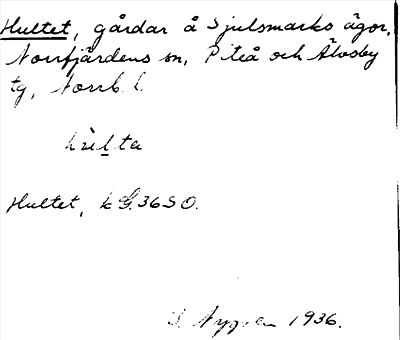 Hultet, gårdar å Sjulsmarks ägor,
Norrfjärdens sn, Piteå och Älvsby
tg, Norrb. l.
Hultet, k G. 36 S O.
Nygren 1936.